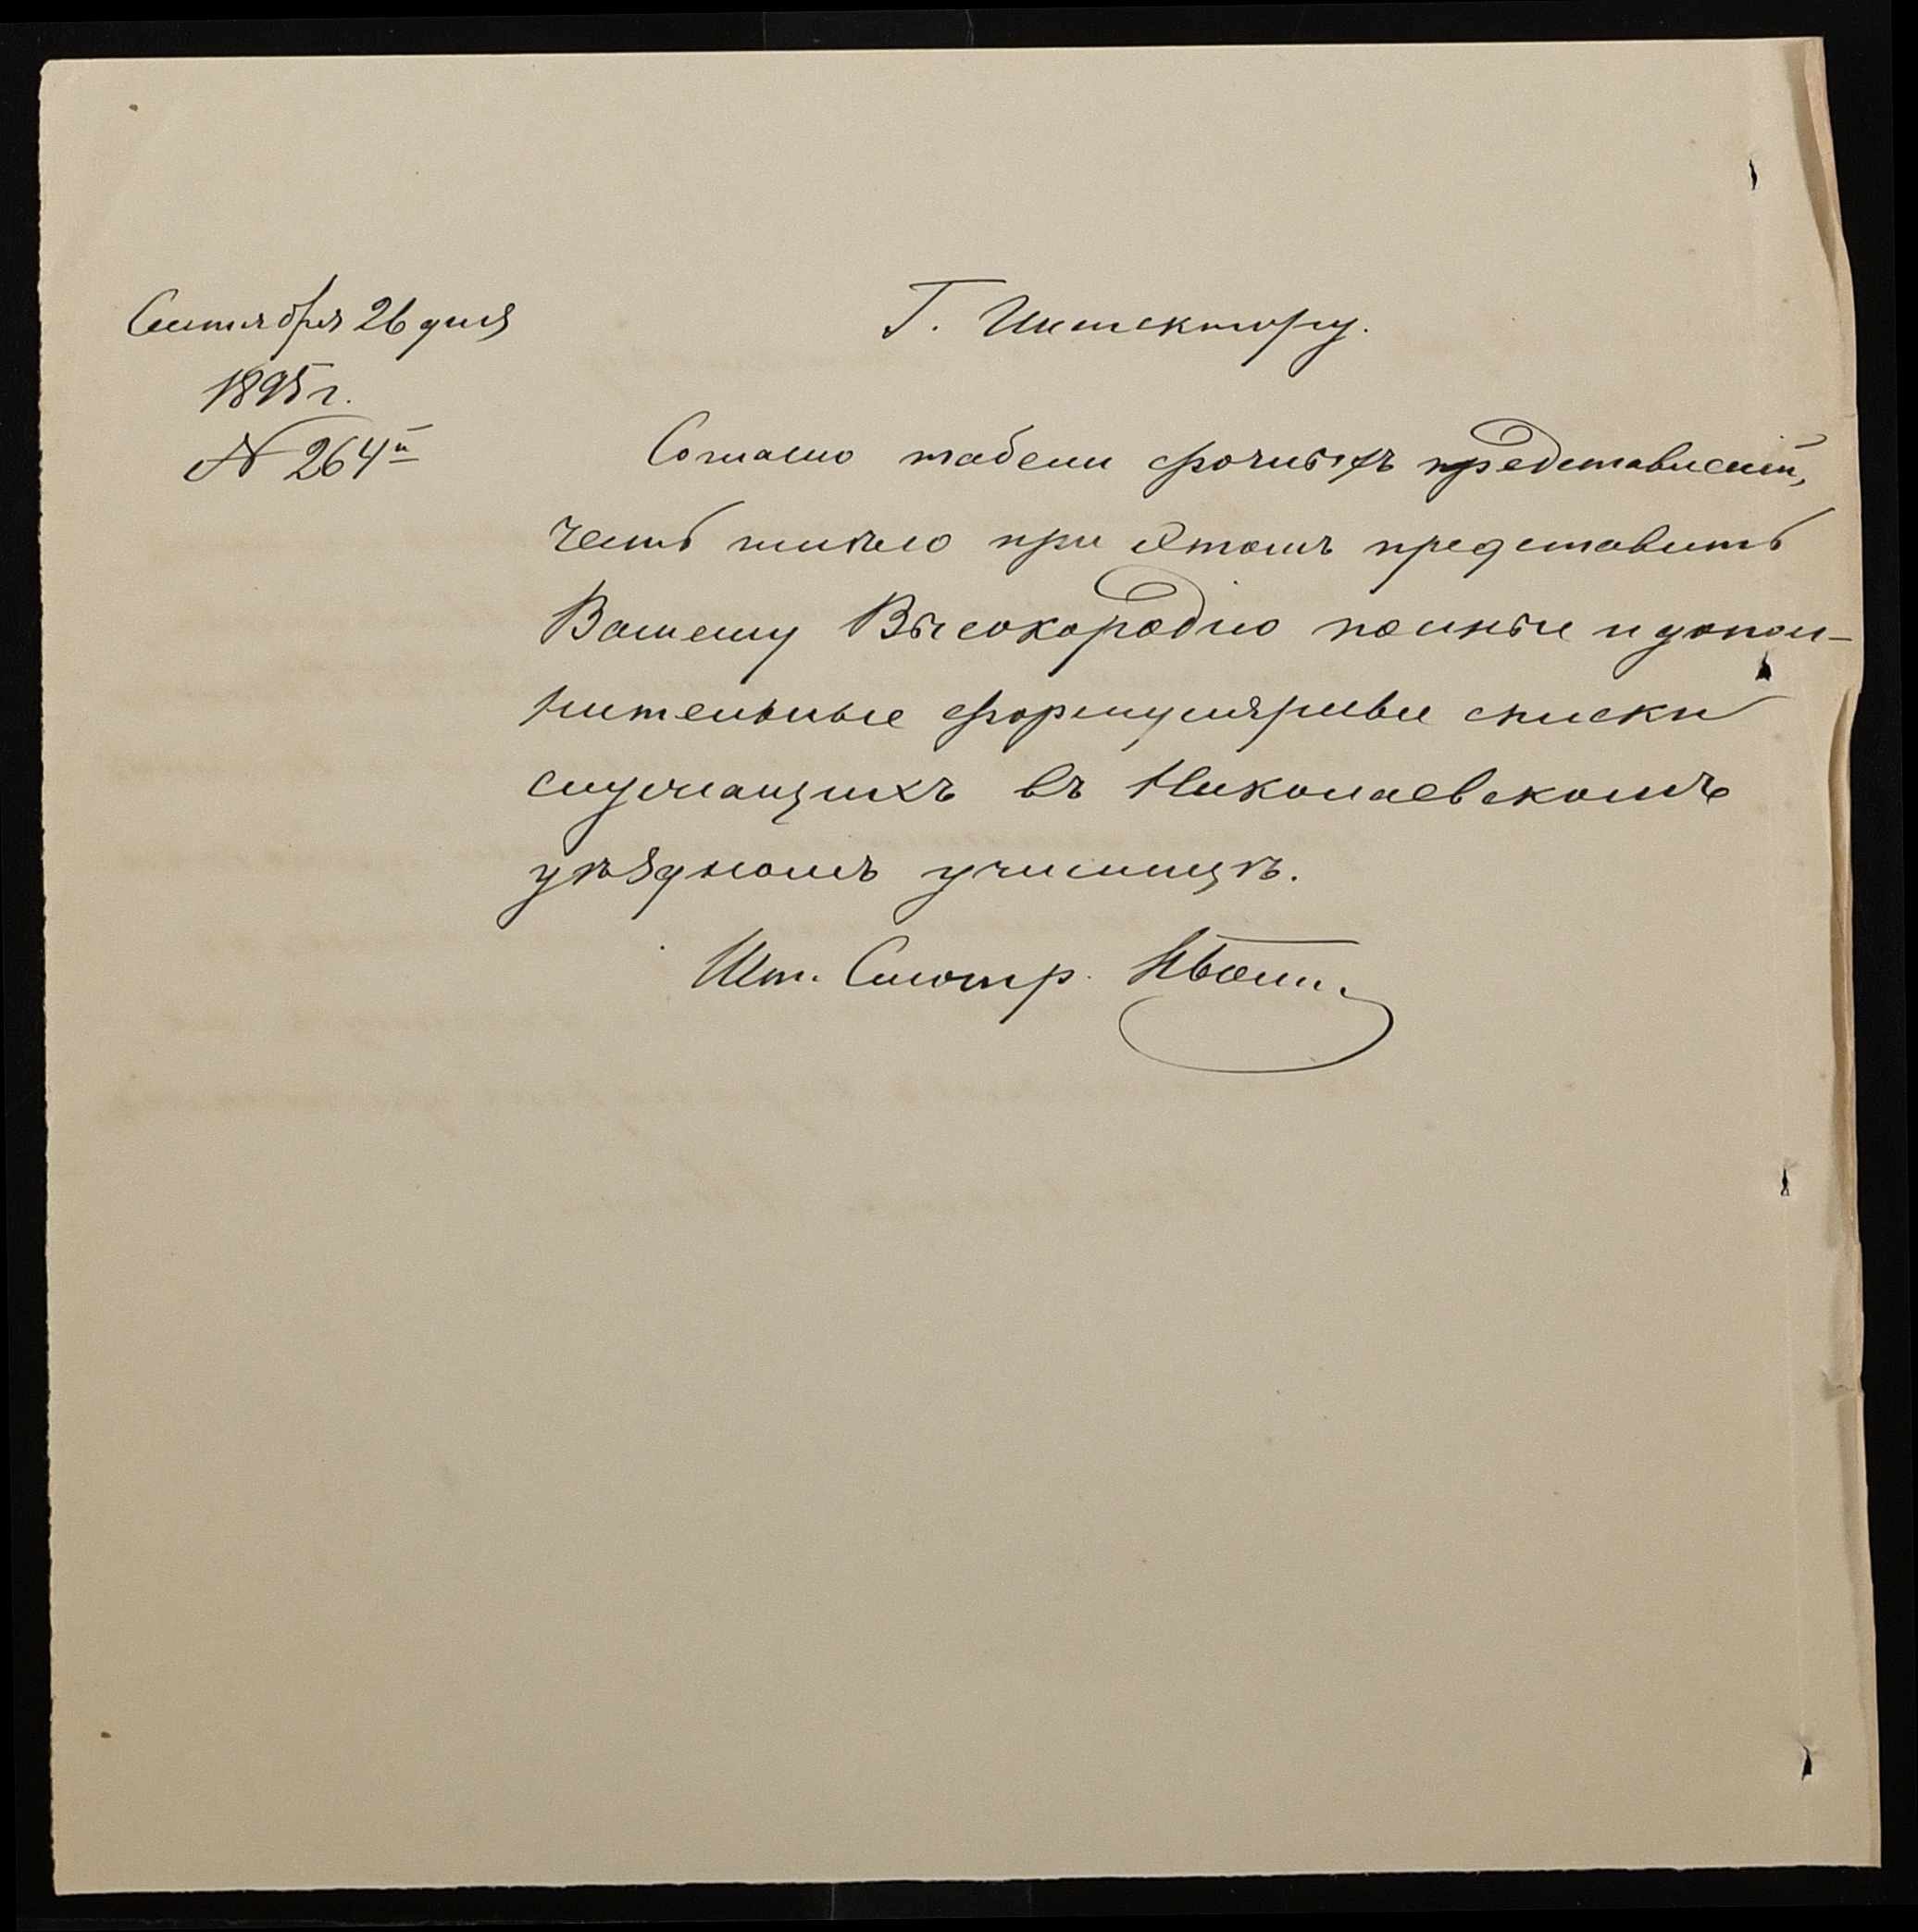 Сентября 26 дня
1895 г.
№ 264й
Г. Инспектору.
Согласно табели срочныхъ представленій,
честь имѣю при этомъ представить
Вашему Высокородію полные и допол-
нительные формулярные списки
служащихъ въ Николаевскомъ
уѣздномъ училищѣ.
Шт. Смотр.